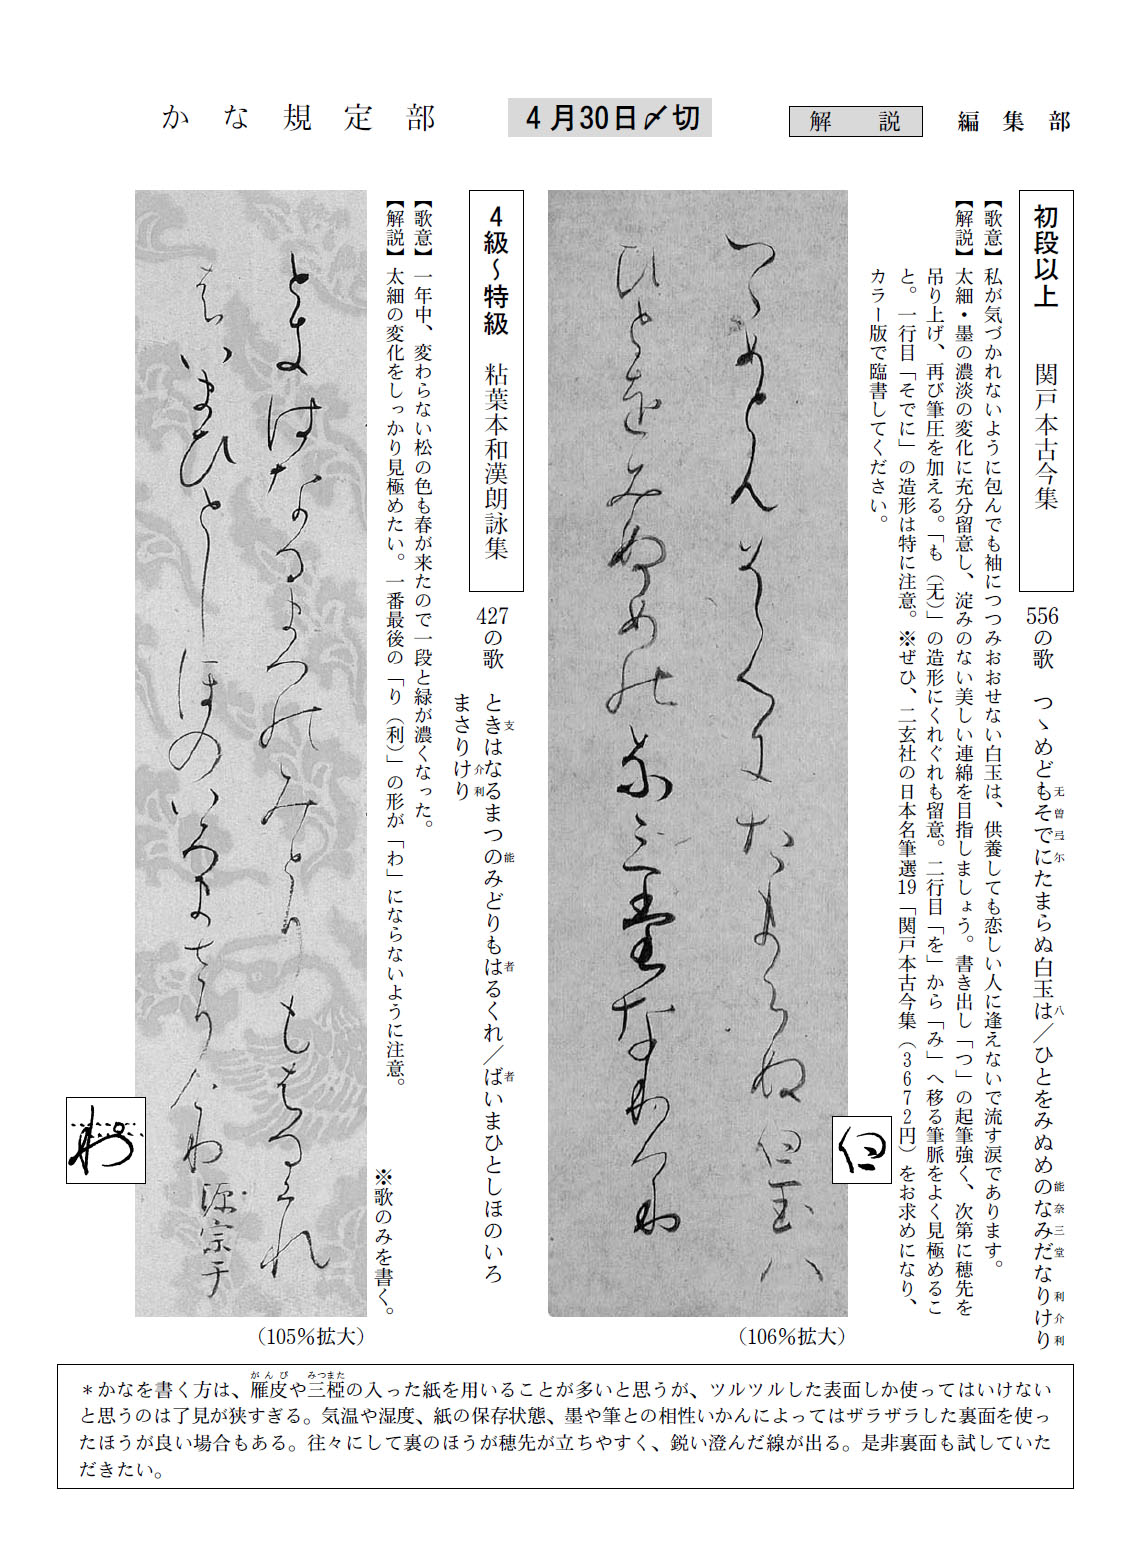 かな規定部
4月30日〆切
解説
編集部
初段以上 関戸本古今集
556の歌 つゝめどもそでにたまらぬ白玉は／ひとをみぬめのなみだなりけり
无曽弖尓 八 能奈三堂 利介利
【歌意】私が気づかれないように包んでも袖につつみおおせない白玉は、供養しても恋しい人に逢えないで流す涙であります。
【解説】太細・墨の濃淡の変化に充分留意し、淀みのない美しい連綿を目指しましょう。書き出し「つ」の起筆強く、次第に穂先を
吊り上げ、再び筆圧を加える。「も（无）」の造形にくれぐれも留意。二行目「を」から「み」へ移る筆脈をよく見極めるこ
と。一行目「そでに」の造形は特に注意。※ぜひ、二玄社の日本名筆選19「関戸本古今集（3672円）をお求めになり、
カラー版で臨書してください。
つゝめとんそてにたまらぬ白玉八
ひとをみぬめの奈三堂なりけり
（106％拡大）
4級～特級 粘葉本和漢朗詠集
427の歌 ときはなるまつのみどりもはるくれ／ばいまひとしほのいろ
まさりけり
支 能 者 者
介利
【歌意】一年中、変わらない松の色も春が来たので一段と緑が濃くなった。
【解説】太細の変化をしっかり見極めたい。一番最後の「り（利）」の形が「わ」にならないように注意。
※歌のみを書く。
ときはなるまつのみとりもはるくれ
はいまひとしほのいろまさりけり 源宗于
（105％拡大）
＊かなを書く方は、雁皮や三椏の入った紙を用いることが多いと思うが、ツルツルした表面しか使ってはいけない
がんぴ みつまた
と思うのは了見が狭すぎる。気温や湿度、紙の保存状態、墨や筆との相性いかんによってはザラザラした裏面を使っ
たほうが良い場合もある。往々にして裏のほうが穂先が立ちやすく、鋭い澄んだ線が出る。是非裏面も試していた
だきたい。